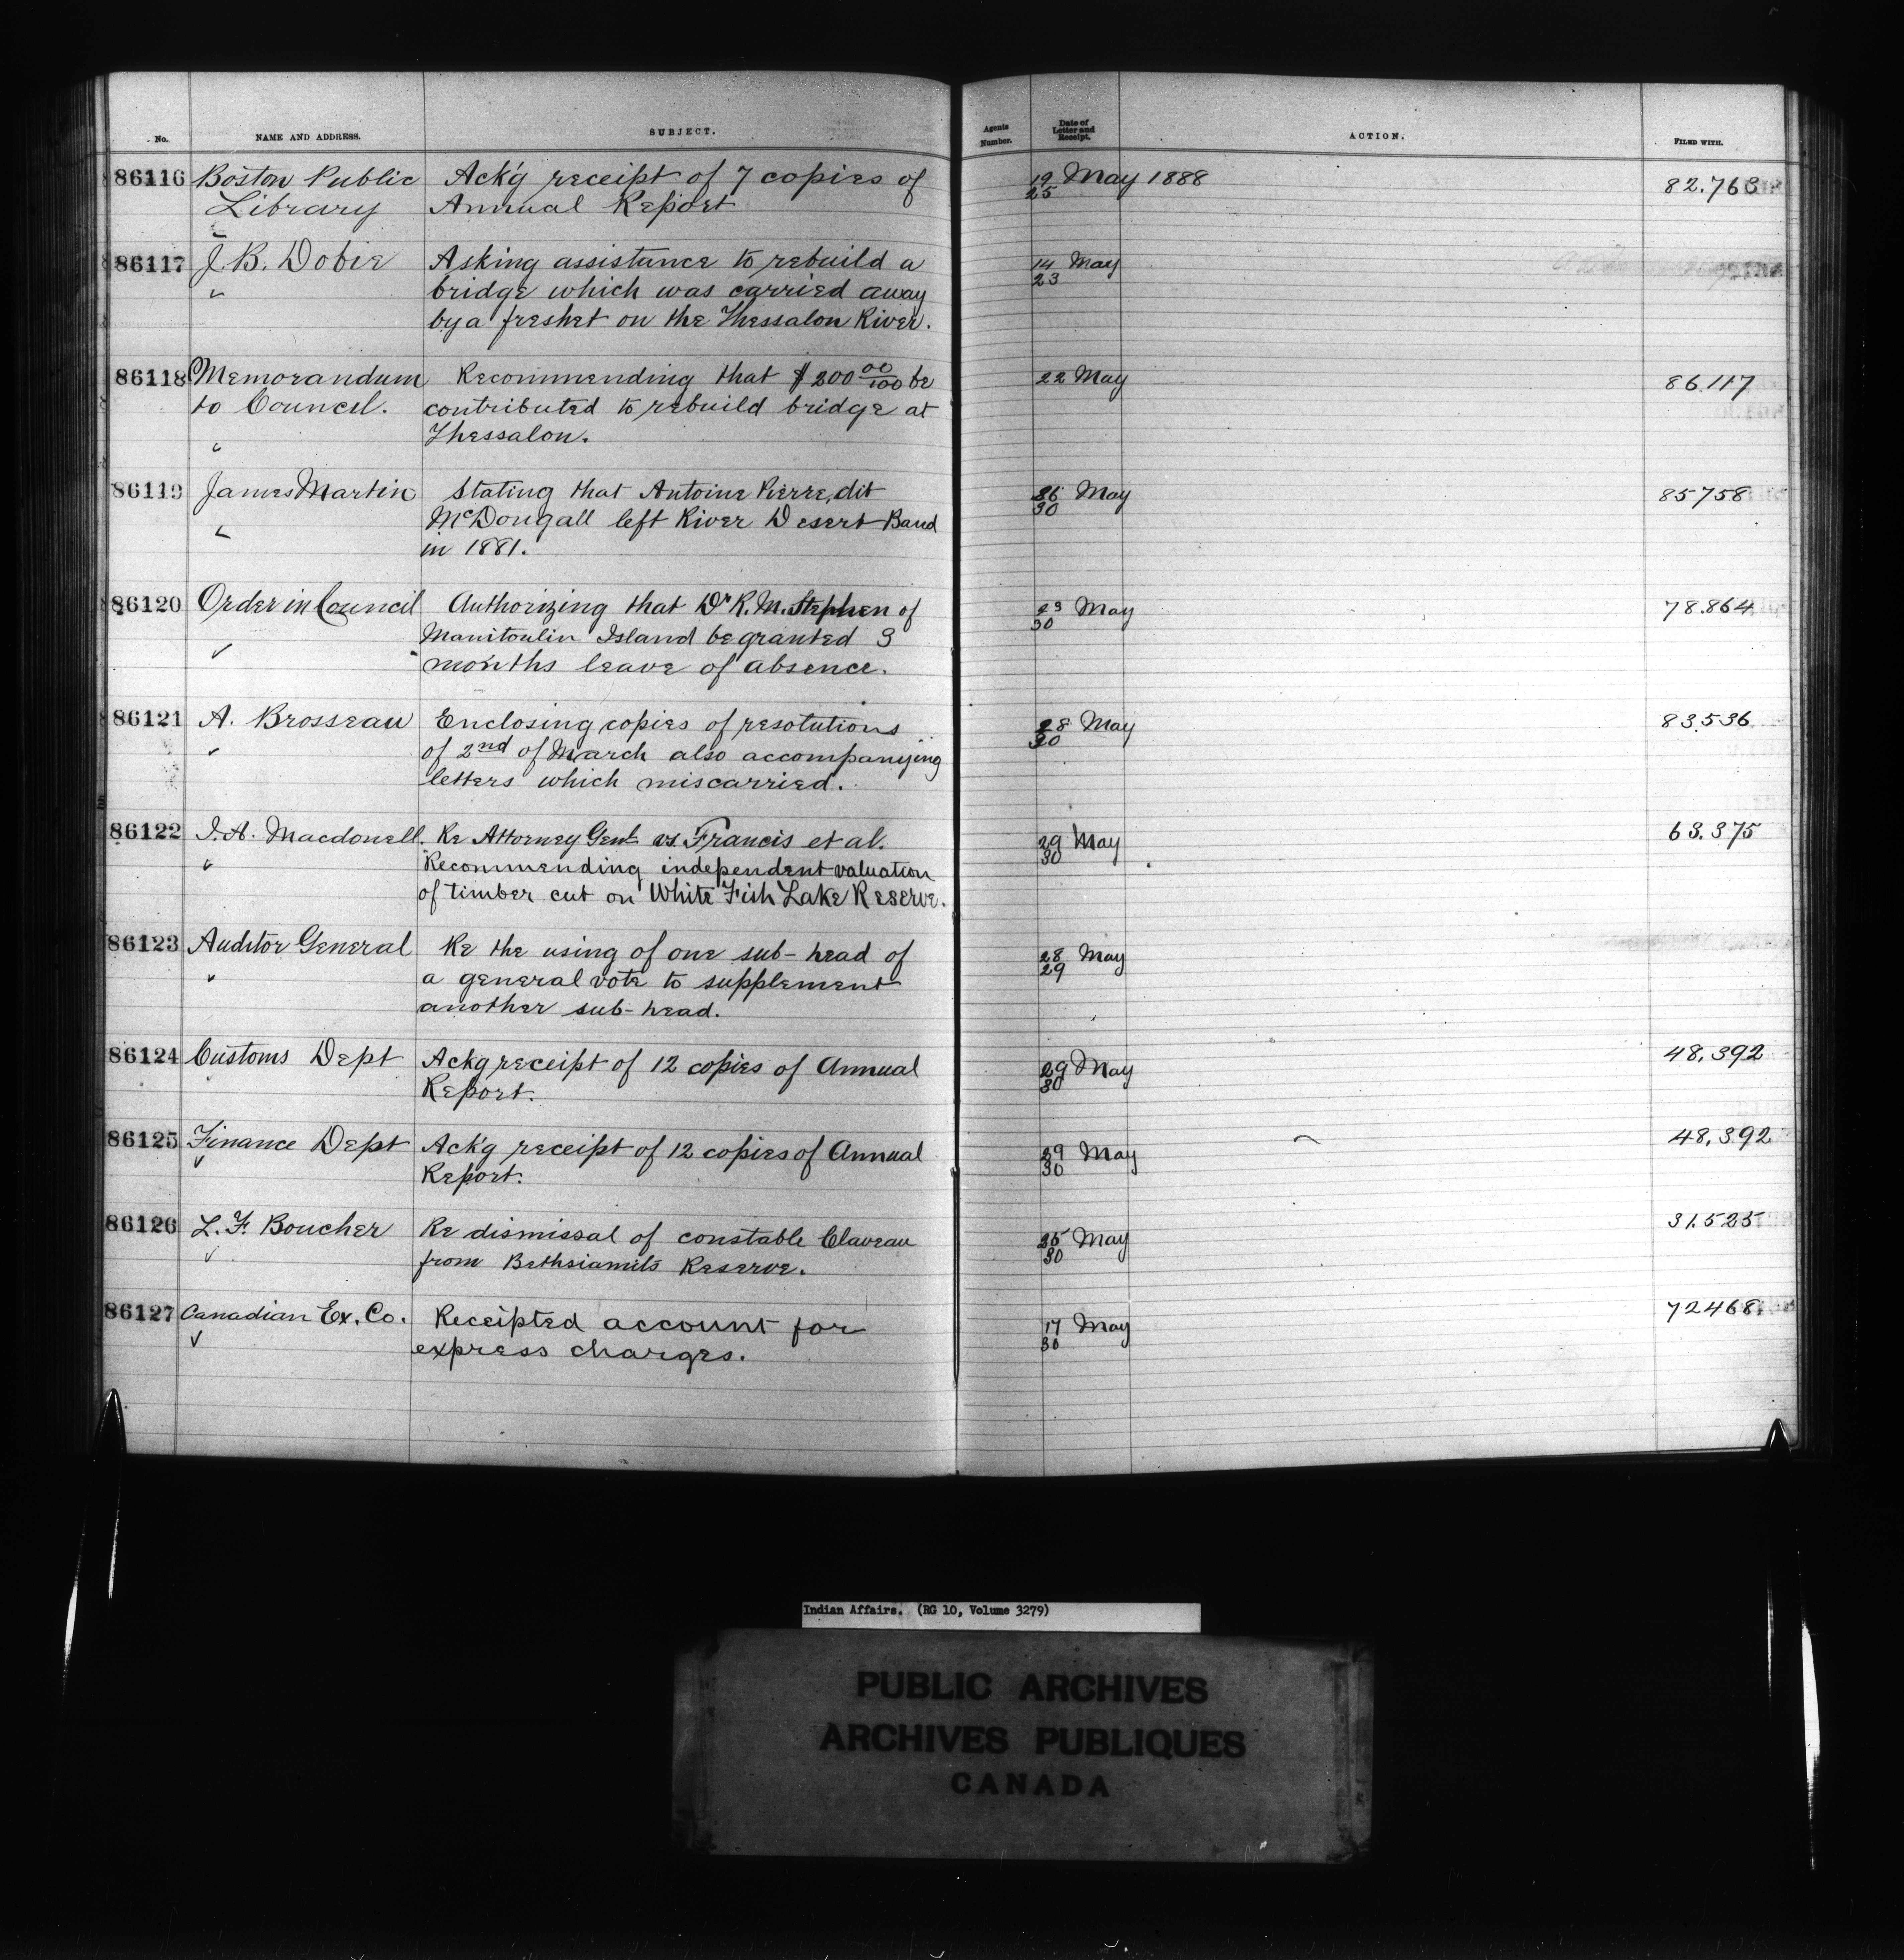 No. NAME AND ADDRESS. SUBJECT. Agents Number. Date of Letter and Receipt. ACTION. FILED WITH.
86116 Boston Public Ack'g receipt of 7 copies of 19 May 1888 82.763
Library Annual Report 25
86117 J. B. Dobie Asking assistance to rebuild a 14 May
" bridge which was carried away 23
by a freshet on the Thessalon River.
86118 Memorandum Recommending that $200 00/100 be 22 May 86.117
to Council. contributed to rebuild bridge at
" Thessalon.
86119 James Martin Stating that Antoine Pierre, dit 26 May 85758
McDougall left River Desert Band 30
in 1881.
86120 Order in Council Authorizing that Dr R. M. Stephen of 23 May 78.864
Manitoulin Island be granted 3 30
months leave of absence.
86121 A. Brosseau Enclosing copies of resolutions 28 May 83.536
of 2nd of March also accompanying 30
letters which miscarried.
86122 J. A. Macdonell. Re Attorney Genl vs. Francis et al. 29 May 63.375
" Recommending independent valuation 30
of timber cut on White Fish Lake Reserve.
86123 Auditor General Re the using of one sub-head of 28 May
" a general vote to supplement 29
another sub-head.
86124 Customs Dept Ackg receipt of 12 copies of Annual 29 May 48.392
Report. 30
86125 Finance Dept Ack'g receipt of 12 copies of Annual 29 May 48.392
Report. 30
86126 L. F. Boucher Re dismissal of constable Claveau 25 May 31.525
from Bethsiamits Reserve. 30
86127 Canadian Ex. Co. Receipted account for 17 May 72468
express charges. 30
Indian Affairs. (RG 10, Volume 3279)
PUBLIC ARCHIVES
ARCHIVES PUBLIQUES
CANADA